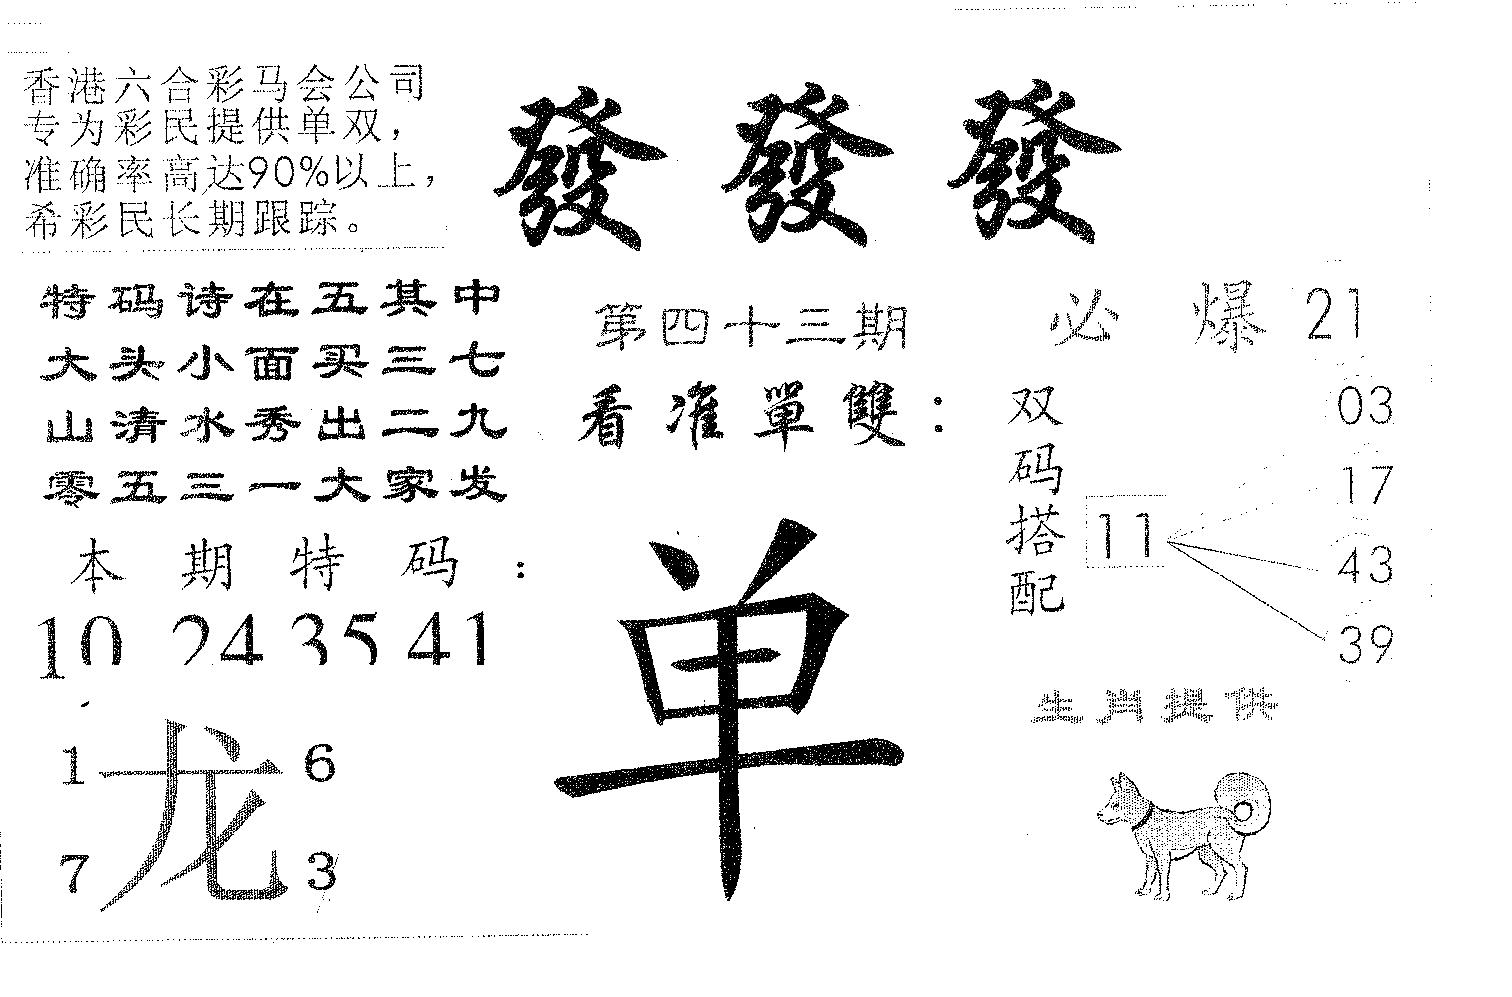 香港六合彩马会公司
专为彩民提供单双，
准确率高达90%以上，
希彩民长期跟踪。
發 發 發
特码诗在五其中
大头小面买三七
山清水秀出二九
零五三一大家发
第四十三期
看准單雙：
单
必 爆 21
双码搭配
11
03
17
43
39
本期特码：
10 24 35 41
1 龙 6
7 3
生肖提供